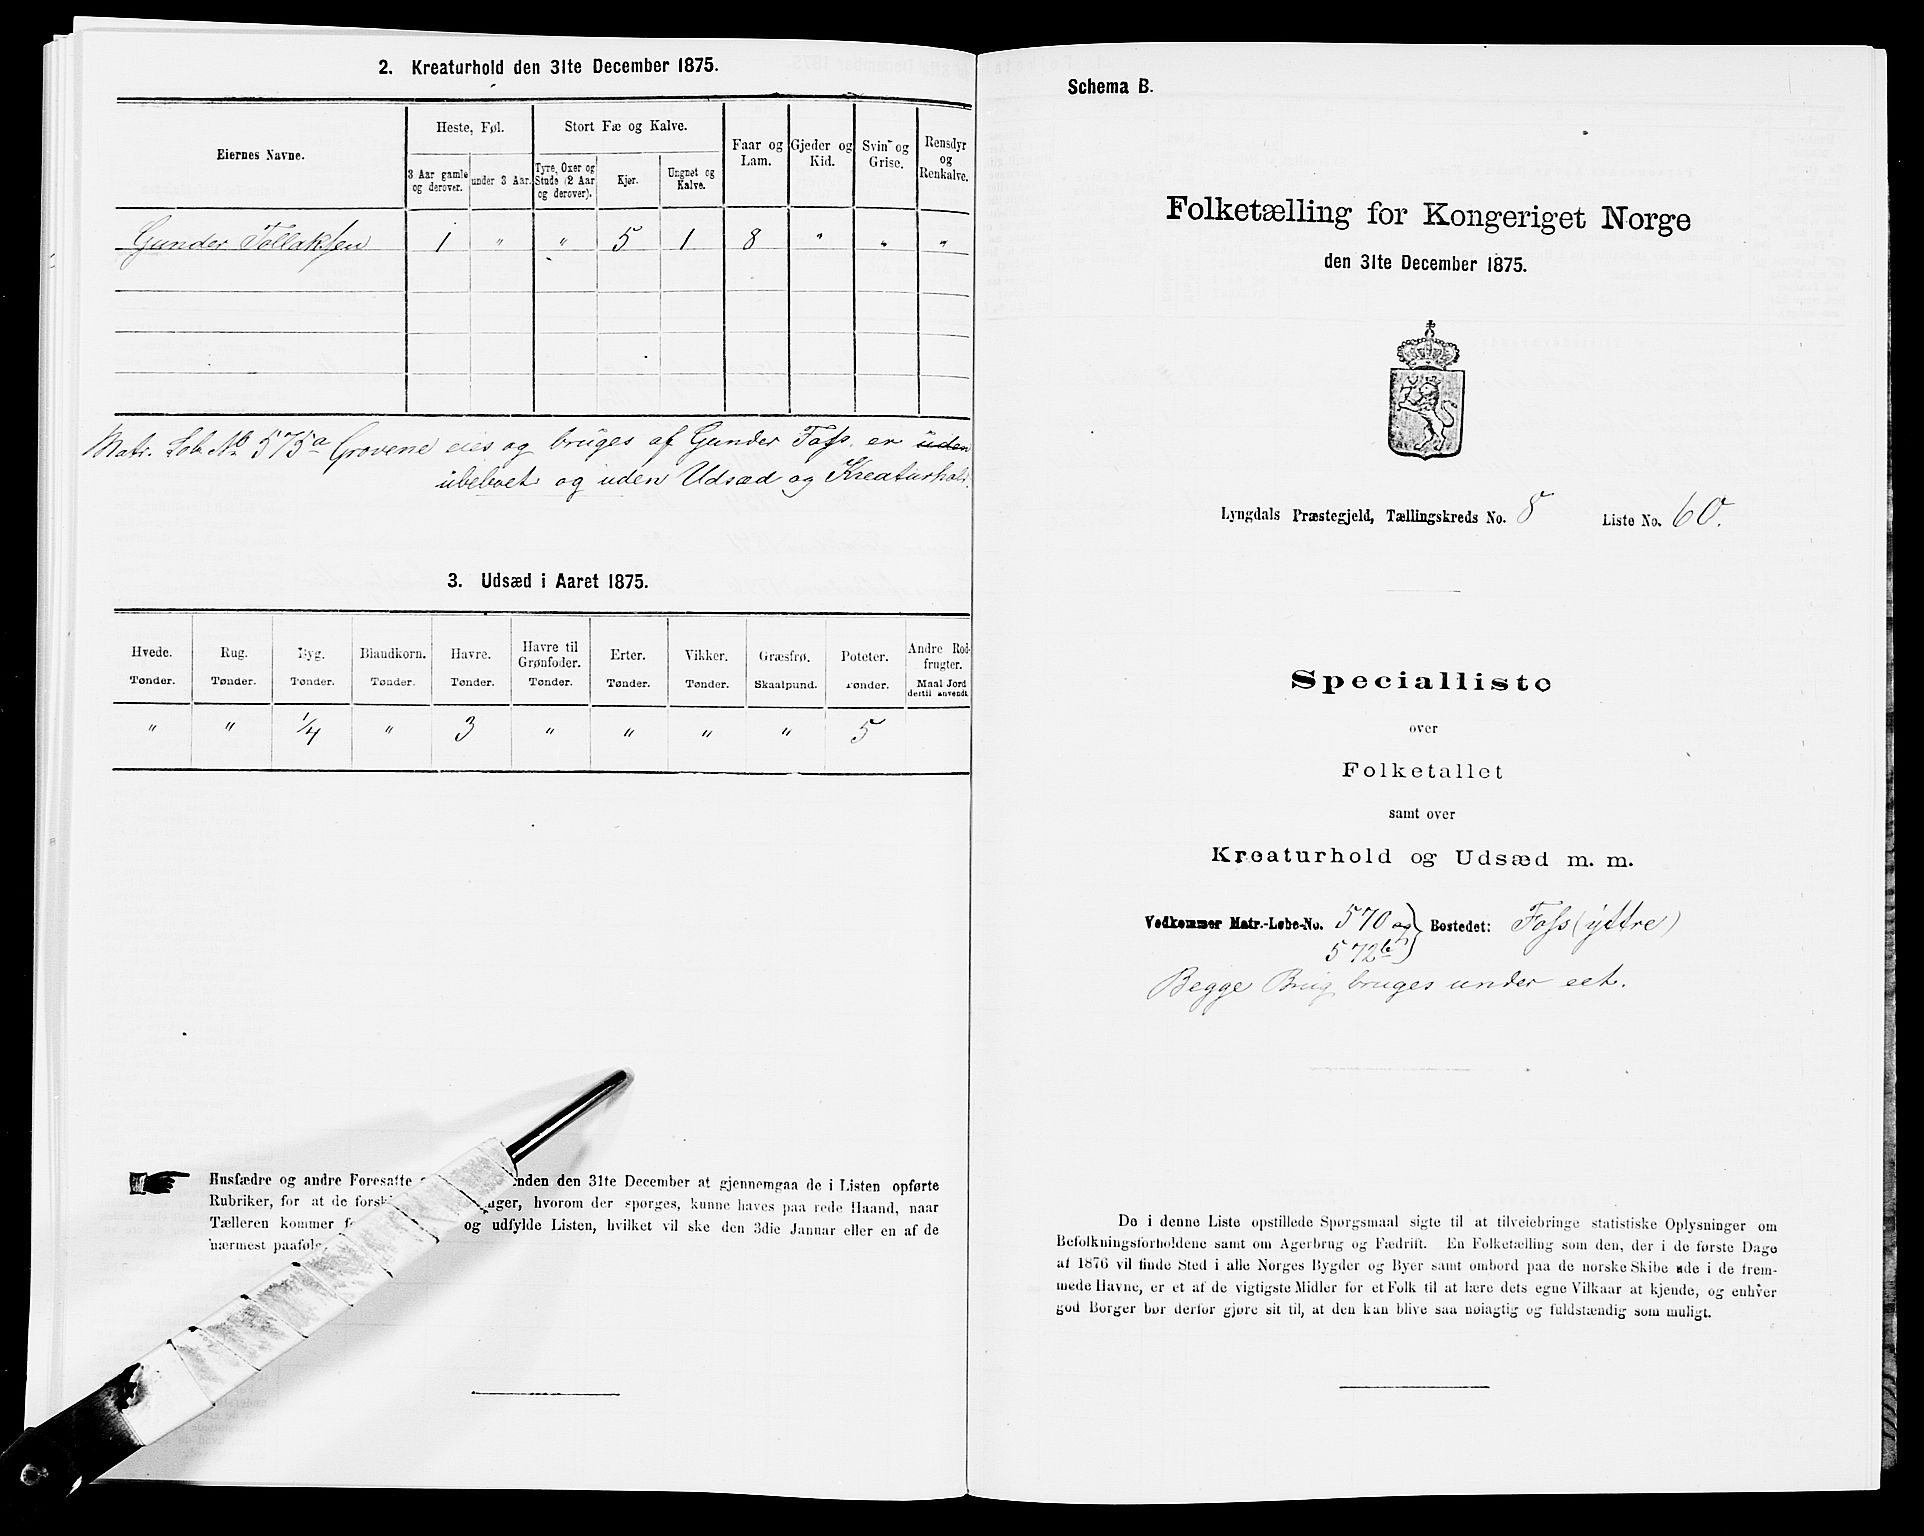 2. Kreaturhold den 31te December 1875.
Eiernes Navne.
Heste, Føl.
Stort Fæ og Kalve.
Faar og Lam.
Gjeder og Kid.
Svin og Grise.
Rensdyr og Renkalve.
3 Aar gamle og derover.
under 3 Aar.
Tyre, Oxer og Stude (2 Aar og derover).
Kjør.
Ungnet og Kalve.
Gunder Tollaksen 1 " " 5 1 8 " " "
Matr. Lob. No 575a Grovene eies og bruges af Gunder Foss. er uden
ubeboet og uden Udsæd og Kreaturhold.
3. Udsæd i Aaret 1875.
Hvede. Rug. Byg. Blandkorn. Havre. Havre til Grønfoder. Erter. Vikker. Græsfrø. Poteter. Andre Rodfrugter.
Tønder. Tønder. Tønder. Tønder. Tønder. Tønder. Tønder. Tønder. Skaalpund. Tønder. Maal Jord dertil anvendt.
" " 1/4 " 3 " " " " 5
Husfædre og andre Foresatte enden den 31te December at gjennemgaa de i Listen opførte
Rubriker, for at de , hvorom der spørges, kunne haves paa rede Haand, naar
Tælleren kommer og udfylde Listen, hvilket vil ske den 3die Januar eller en af de
nærmest
Schema B.
Folketælling for Kongeriget Norge
den 31te December 1875.
Lyngdals Præstegjeld, Tællingskreds No. 8 Liste No. 60.
Specialliste
over
Folketallet
samt over
Kreaturhold og Udsæd m. m.
Vedkommer Matr.-Løbe-No. 570 og Bostedet: Foss (yttre)
572b
Begge Brug bruges under eet.
De i denne Liste opstillede Spørgsmaal sigte til at tilveiebringe statistiske Oplysninger om
Befolkningsforholdene samt om Agerbrug og Fædrift. En Folketælling som den, der i de første Dage
af 1876 vil finde Sted i alle Norges Bygder og Byer samt ombord paa de norske Skibe ude i de frem-
mede Havne, er et af de vigtigste Midler for et Folk til at lære dets egne Vilkaar at kjende, og enhver
god Borger bør derfor gjøre sit til, at den kan blive saa nøiagtig og fuldstændig som muligt.